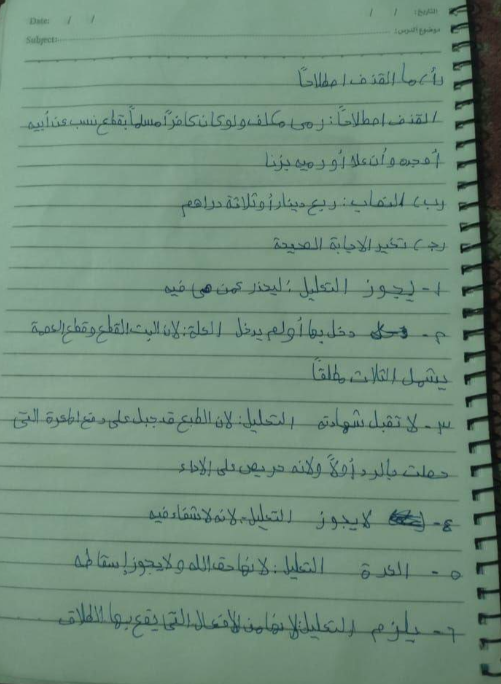 التاريخ: / /
Date: / /
موضوع الدرس:
Subject:
(أ) ما القذف اصطلاحًا
القذف اصطلاحًا: رمى مكلف ولو كان كافرًا مسلمًا بقطع نسب عن أبيه
أو جده وأن علا أو رميه بزنا
(ب) النصاب: ربع دينار أو ثلاثة دراهم
(ج) تخير الاجابة الصحيحة
١- يجوز التعليل: ليحذر عمن هى فيه
٢- دخل بها أو لم يدخل العلة: لان البت القطع وقطع العصمة
يشمل الثلاث مطلقًا
٣- لا تقبل شهادته التعليل: لان الطبع قد جبل على دفع المعرة التى
حصلت بالرد أولاً ولانه حريص على الاداء
٤- لا يجوز التعليل: لانه لا شفاء فيه
٥- العدة التعليل: لانها حق الله ولا يجوز إسقاطه
٦- يلزم التعليل لانها من الأفعال التى يقع بها الطلاق